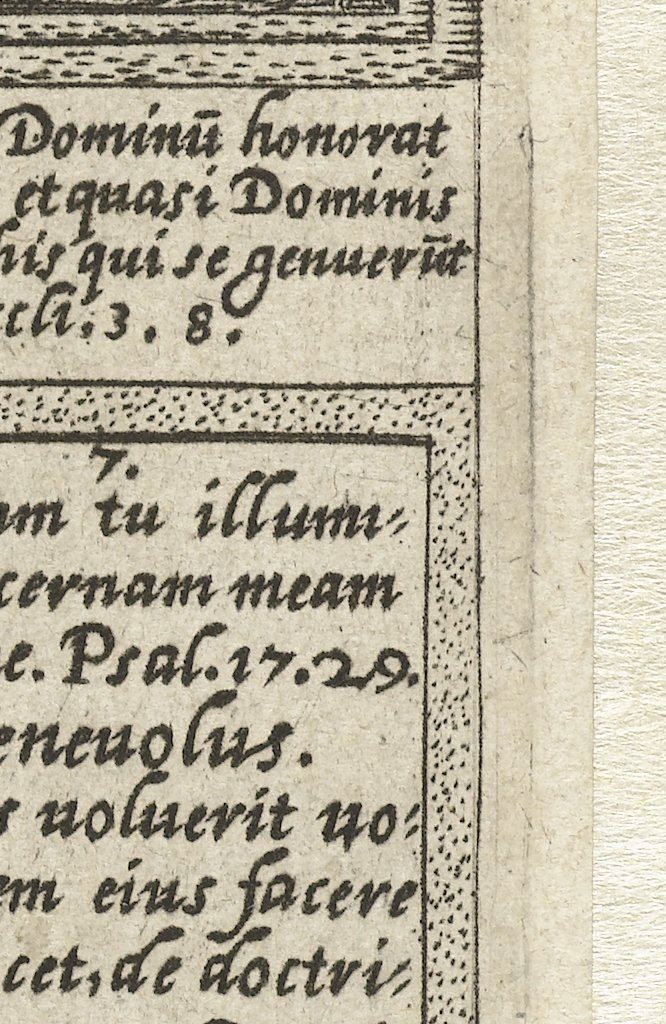 Dominū honorat
et quasi Dominis
his qui se genuerūt
ccli. 3. 8.
7.
um tu illumi-
cernam meam
e. Psal. 17. 29.
eneuolus.
s uoluerit uo-
em eius facere
cet, de doctri-